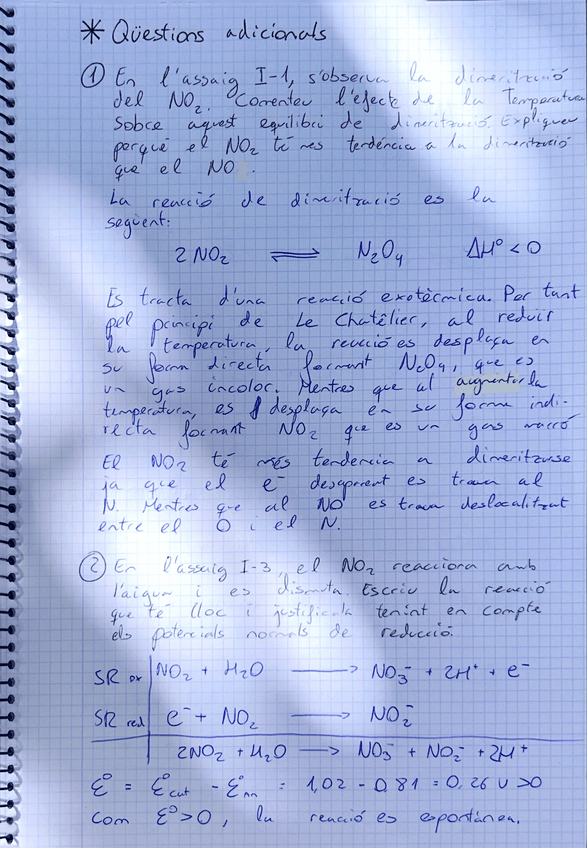 * Qüestions adicionals
① En l'assaig I-1, s'observa la dimerització
del NO₂. Comenteu l'efecte de la Temperatura
sobre aquest equilibri de dimerització. Expliqueu
perquè el NO₂ té més tendència a la dimerització
que el NO.
La reacció de dimerització es la
següent:
2 NO₂ ⇌ N₂O₄ ΔH° < 0
Es tracta d'una reacció exotèrmica. Per tant
pel principi de Le Chatêlier, al reduir
la temperatura, la reacció es desplaça en
su forma directa formant N₂O₄, que es
un gas incolor. Mentres que al augmentar la
temperatura, es desplaça en su forma indi-
recta formant NO₂ que es un gas marró
El NO₂ té més tendencia a dimeritzarse
ja que el e⁻ desaparent es troba al
N. Mentres que al NO es troba deslocalitzat
entre el O i el N.
② En l'assaig I-3, el NO₂ reacciona amb
l'aigua i es dismuta. Escriu la reacció
que té lloc i justifica-la tenint en compte
els potencials normals de reducció.
SR ox | NO₂ + H₂O → NO₃⁻ + 2H⁺ + e⁻
SR red | e⁻ + NO₂ → NO₂⁻
2NO₂ + H₂O → NO₃⁻ + NO₂⁻ + 2H⁺
ε° = ε°cat - ε°an = 1,02 - 0,81 = 0,26 V > 0
Com ε° > 0, la reacció es espontánea.